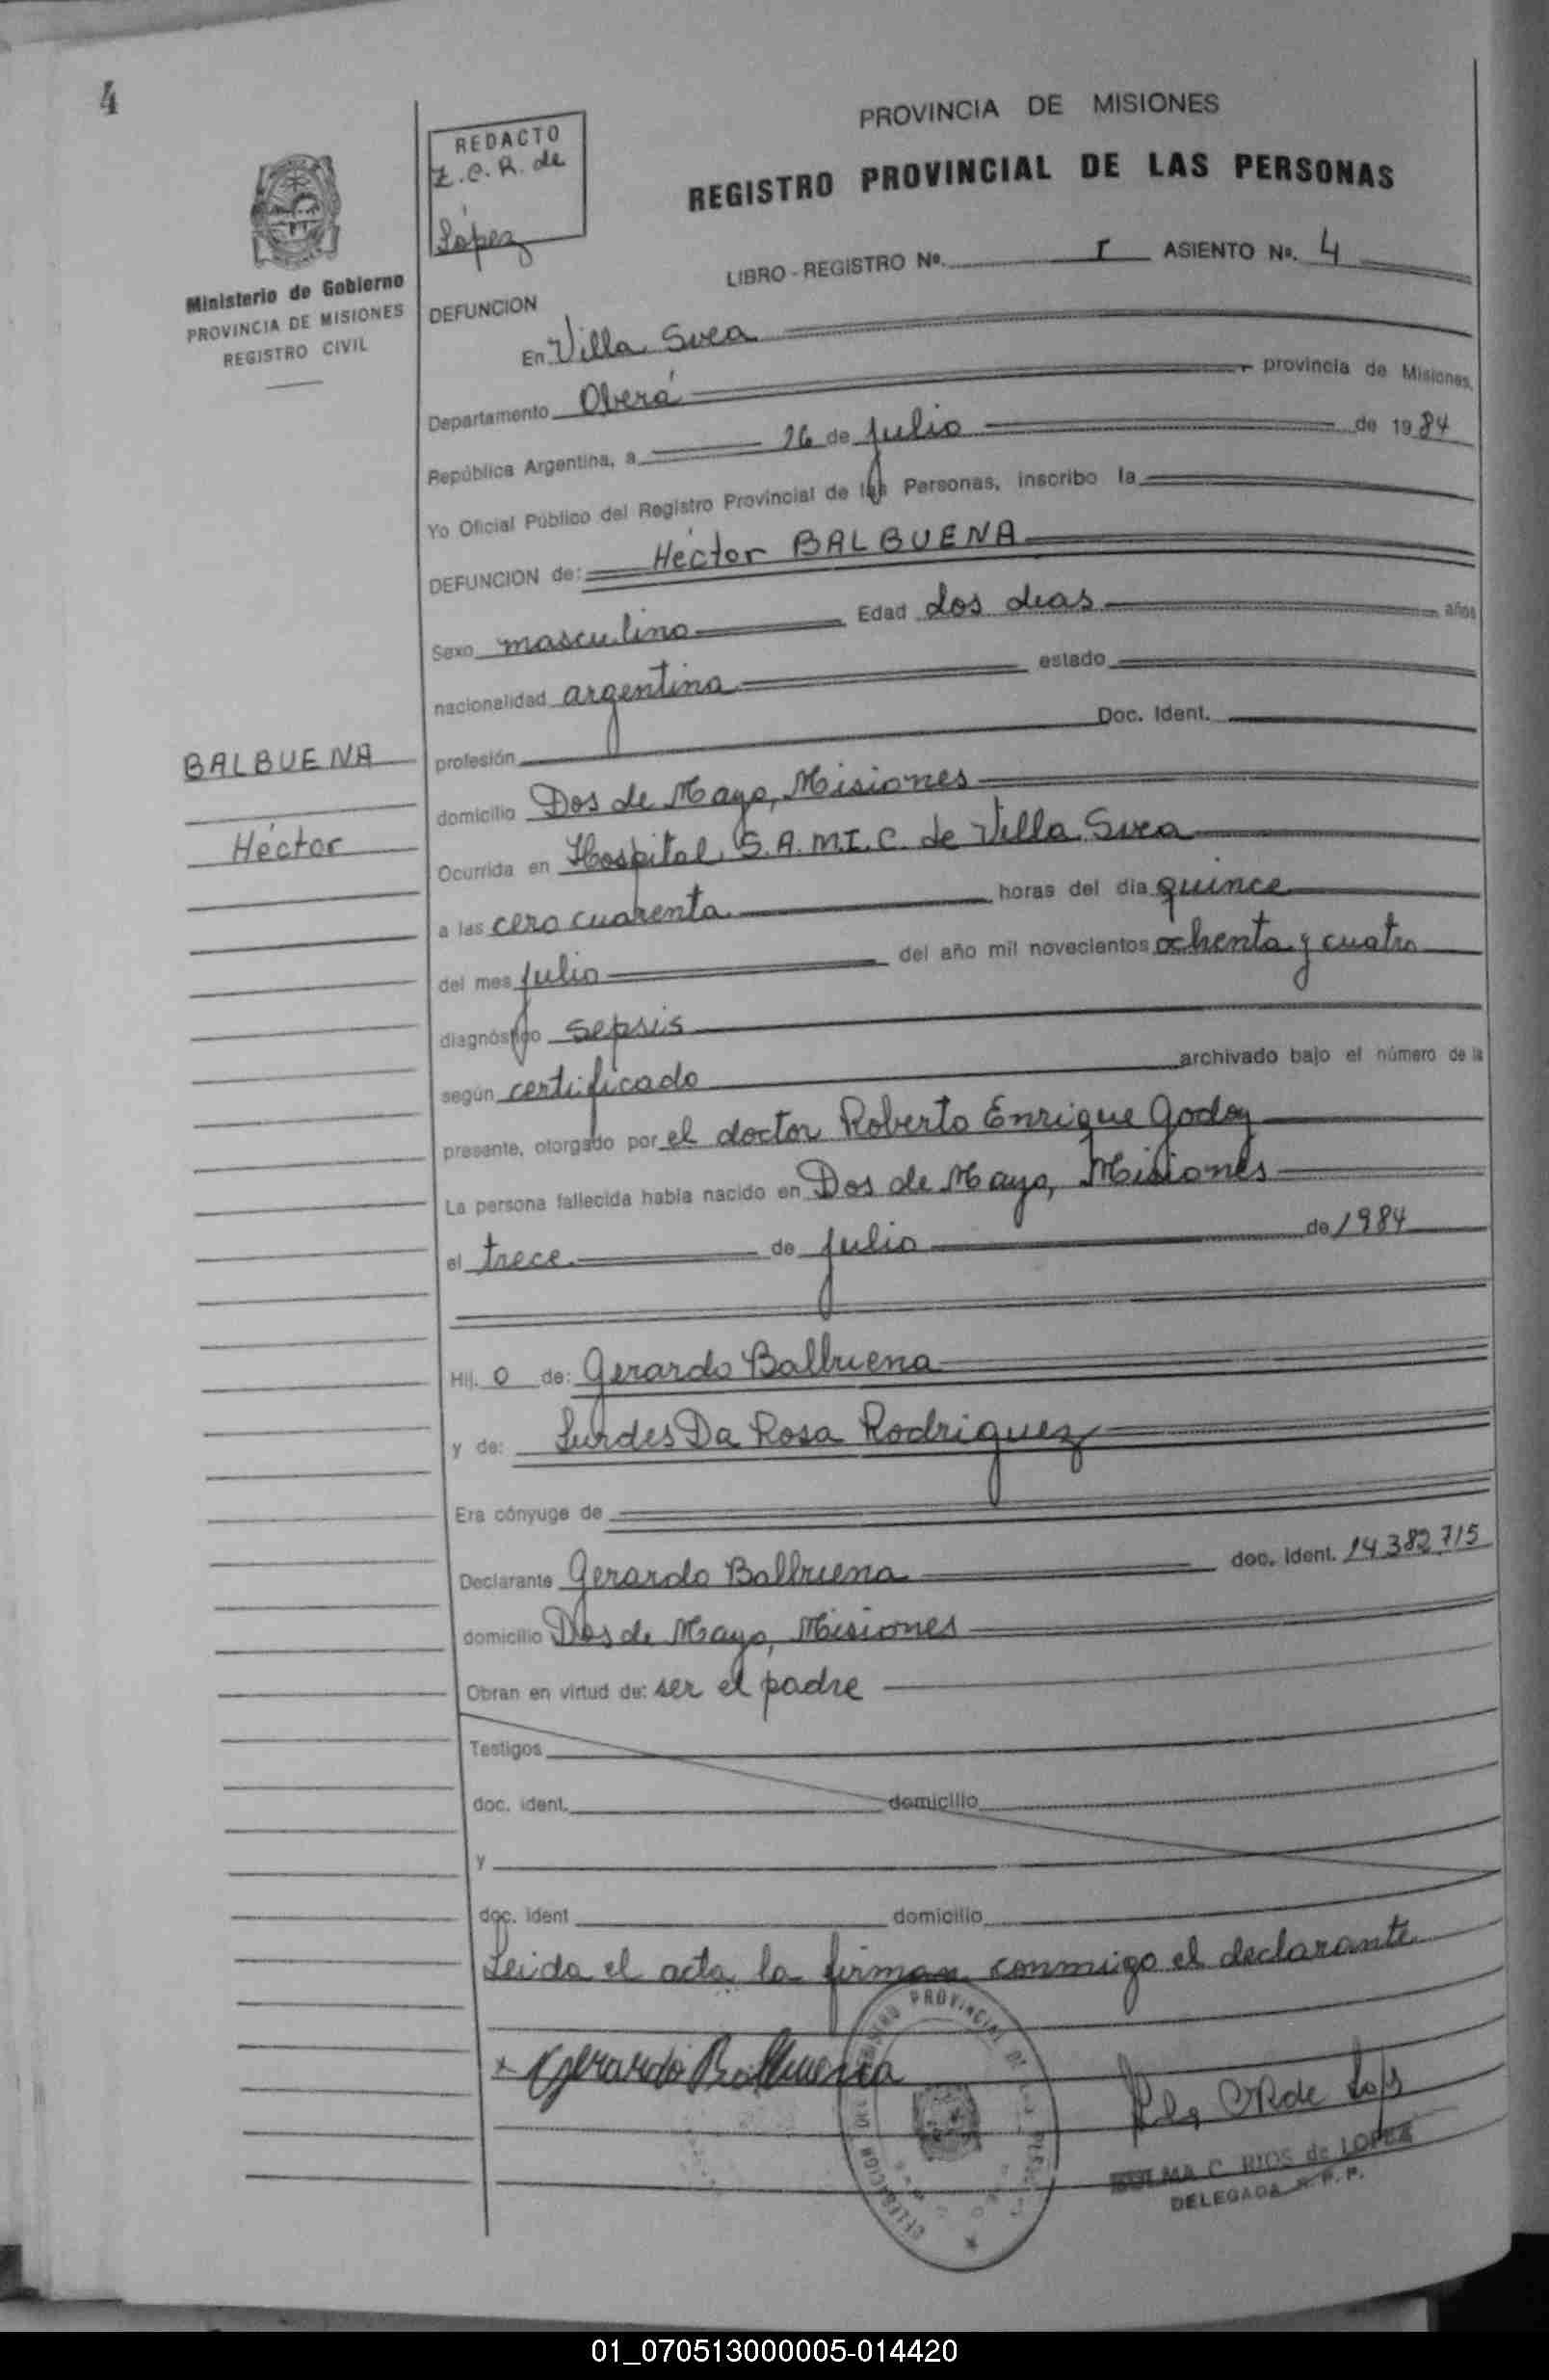 4
REDACTO
Z.C.R. de
López
PROVINCIA DE MISIONES
REGISTRO PROVINCIAL DE LAS PERSONAS
LIBRO - REGISTRO Nº. I ASIENTO Nº. 4
Ministerio de Gobierno
PROVINCIA DE MISIONES
REGISTRO CIVIL
DEFUNCION
En Villa Svea
Departamento Oberá provincia de Misiones,
República Argentina, a 26 de julio de 1984
Yo Oficial Público del Registro Provincial de las Personas, inscribo la
DEFUNCION de: Héctor BALBUENA
Sexo masculino Edad dos dias años
nacionalidad argentina estado
profesión Doc. Ident.
BALBUENA
Héctor
domicilio Dos de Mayo, Misiones
Ocurrida en Hospital S.A.M.I.C. de Villa Svea
a las cero cuarenta horas del dia quince
del mes julio del año mil novecientos ochenta y cuatro
diagnóstico sepsis
según certificado archivado bajo el número de la
presente, otorgado por el doctor Roberto Enrique Godoy
La persona fallecida habia nacido en Dos de Mayo, Misiones
el trece de julio de 1984
Hij. o de: Gerardo Balbuena
y de: Lurdes Da Rosa Rodriguez
Era cónyuge de
Declarante Gerardo Balbuena doc. ident. 14 382 715
domicilio Dos de Mayo, Misiones
Obran en virtud de: ser el padre
Testigos
doc. ident. domicilio
y
doc. ident domicilio
Leida el acta la firman conmigo el declarante
x Gerardo Balbuena
C RIOS de LOPEZ
DELEGADA R. P. P.
01_070513000005-014420